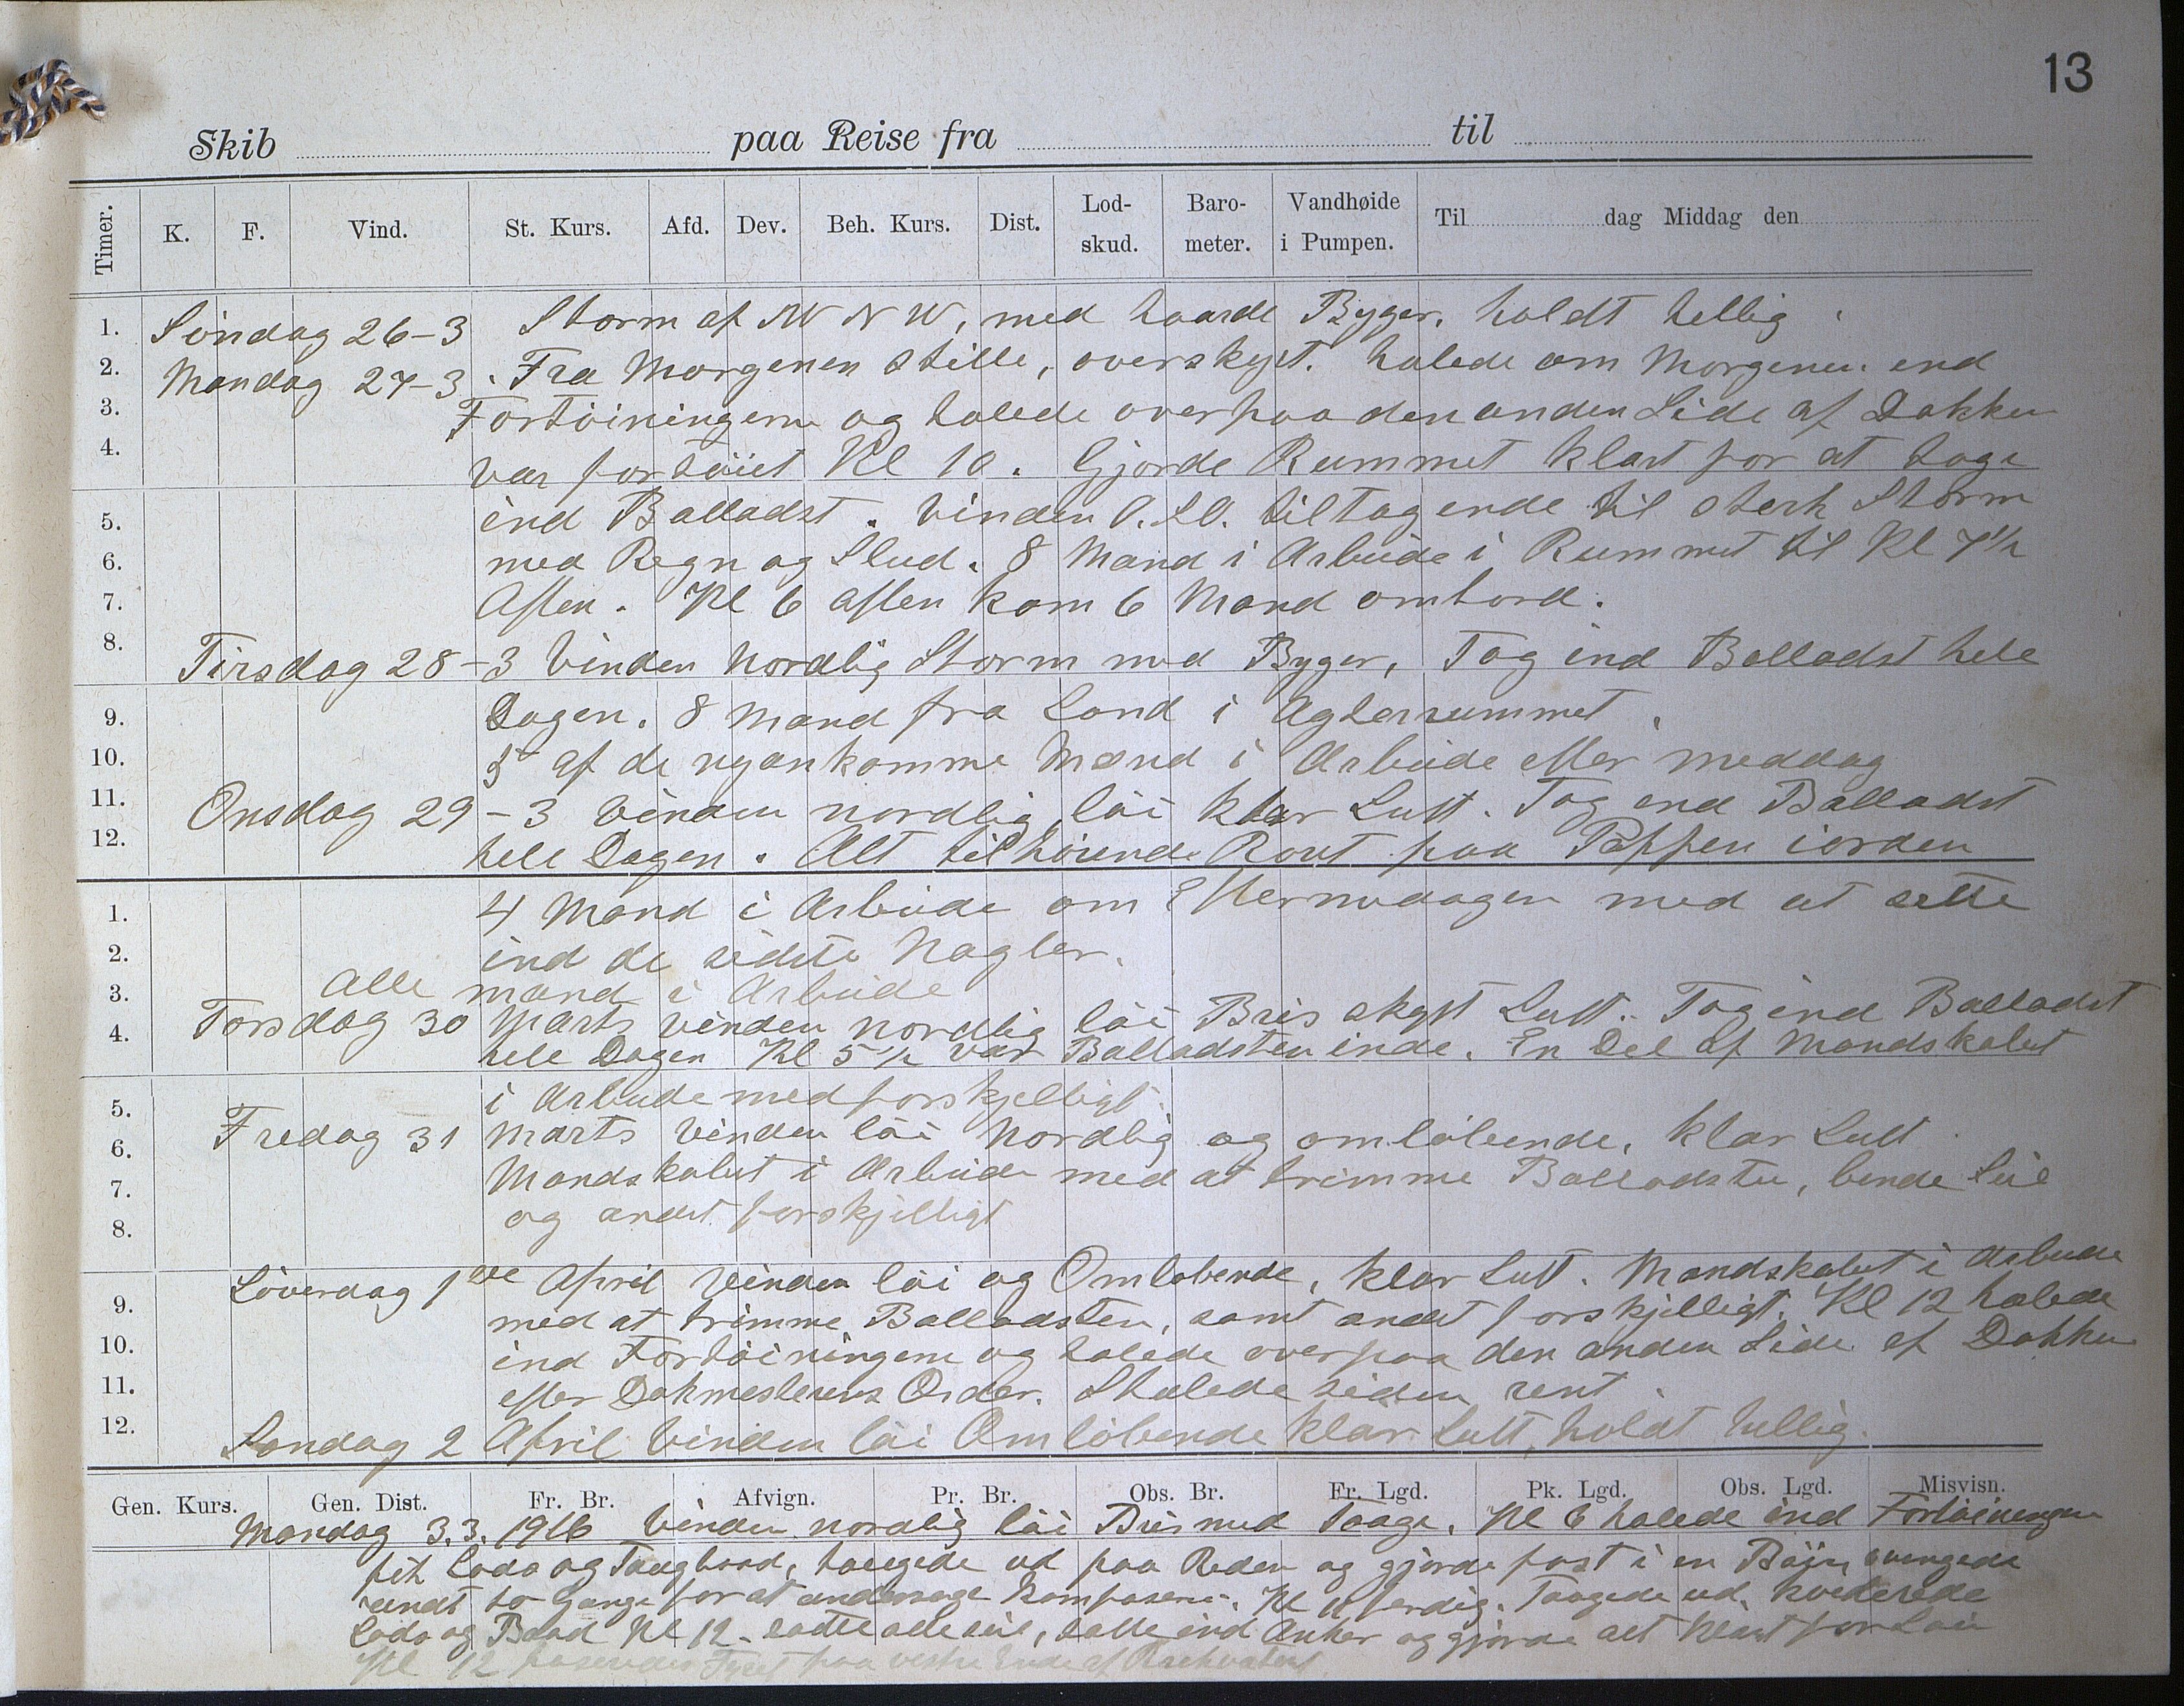 13
Skib paa Reise fra til
Timer. K. F. Vind. St. Kurs. Afd. Dev. Beh. Kurs. Dist. Lod-skud. Baro-meter. Vandhøide i Pumpen. Til dag Middag den
1. Söndag 26-3 Storm af NNW, med haarde Byger, holdt hellig.
2. Mandag 27-3. Fra Morgenen stille, overskyet. halede om Morgenen end
3. Fortöiningerne og halede over paa den anden Side af Dokken
4. var fortöiet Kl 10. Gjorde Rummet klart for at tage
5. ind Balladst. Vinden O.SO. tiltagende til sterk Storm
6. med Regn og Slud. 8 Mand i Arbeide i Rummet til Kl 7½
7. Aften. Kl 6 aften kom 6 Mand ombord.
8. Tirsdag 28-3 Vinden Nordlig Storm med Byger, Tog ind Balladst hele
9. Dagen. 8 Mand fra Land i Agterrummet.
10. 5 af de nyankomne Mænd i Arbeide efter meddag
11. Onsdag 29-3 Vinden nordlig, löi klar Luft. Tog end Balladst
12. hele Dagen. Alt tilhörende Roret paa Poppen iorden
1. 4 Mand i Arbeide om Eftermedagen med at sette
2. ind de sidste Nagler.
3. Alle mand i Arbeide
4. Torsdag 30 Marts Vinden nordlig löi Bris skyet Luft. Tog ind Balladst
hele Dagen Kl 5½ var Balladsten inde. En Del af Mandskabet
5. i Arbeide med forskjelligt.
6. Fredag 31 Marts Vinden löi Nordlig og omlöbende, klar Luft.
7. Mandskabet i Arbeide med at trimme Balladsten, bende Seil
8. og andet forskjelligt
Löverdag 1ste April Vinden löi og Omlobende, klar Luft. Mandskabet i Arbeide
9. med at trimme Balladsten, samt andet forskjelligt. Kl 12 halede
10. ind Fortöiningerne og halede over paa den anden Side af Dokken
11. efter Dokmesterens Order. Skulede siden rent.
12. Sondag 2 April Vinden löi Omlöbende klar Luft, holdt hellig.
Gen. Kurs. Gen. Dist. Fr. Br. Afvign. Pr. Br. Obs. Br. Fr. Lgd. Pk. Lgd. Obs. Lgd. Misvisn.
Mandag 3.3.1916 Vinden nordlig löi Bris med Taage. Kl 6 halede ind Fortöiningen
fik Lods og Taugbaad, taugede ud paa Reden og gjorde fast i en Böie, svingede
rundt to Gange for at undersoge Kompasene. Kl 11 ferdig. Taagede ud.
Lods og Baad Kl 12. satte alle seil, satte ind Anker og gjorde alt klart for
Kl 12 paserede Fyret paa vestre Ende af